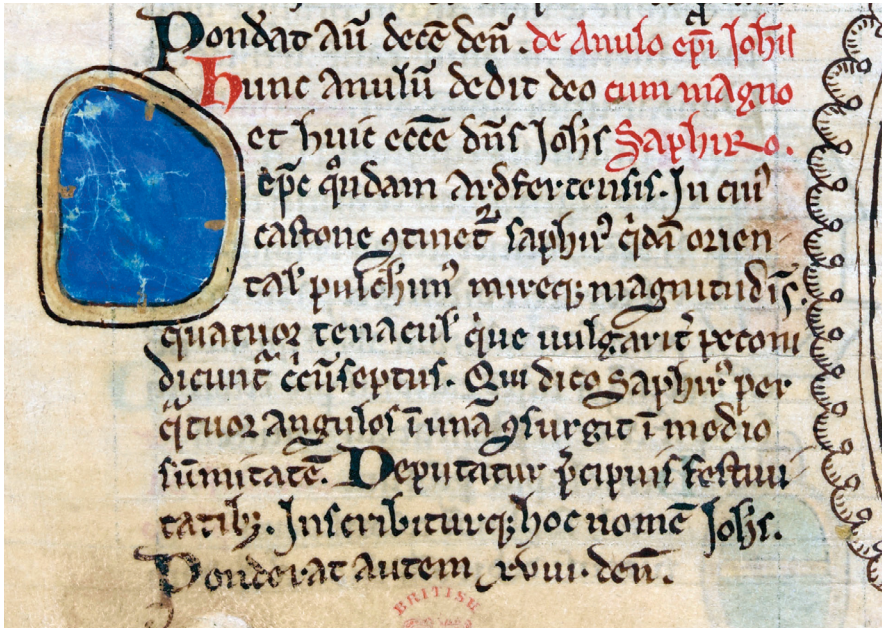 Pond̾at aũ decẽ deñ. de Anulo ep̃i Joh̃is
Hunc anulũ dedit deo cum magno
et huic eccẽ dñs Joh̃s Saphiro.
ep̃c q̊ndam Ardfertensis. In cuiꝰ
castone ꝯtinet᷑ saphirꝰ q̇dã orien
tal̾ pulch̾imꝰ mireqꝫ magnitudĩs.
quatuor tenacul̾ q̇ue uulgarit̾ pecom
dicunt᷑ c̾cũseptus. Qui dicꝰ Saphirꝰ per
q̃tuor angulos ĩ unã ꝯsurgit ĩ medio
sũmitatẽ. Deputatur p̾cipuis festiui
tatibꝫ. Inscribiturqꝫ hoc nomẽ Joh̃s.
Ponderat autem xviii. deñ.
BRITISH